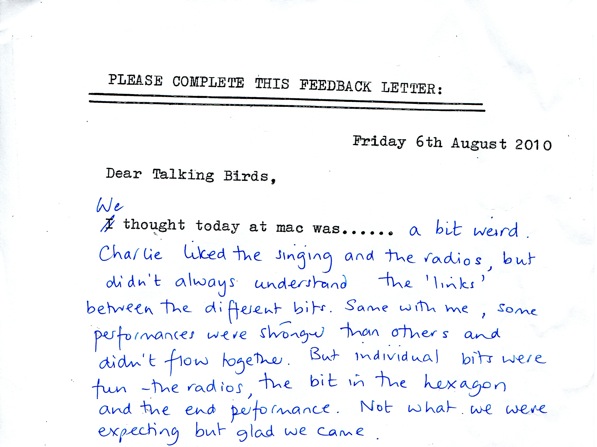 PLEASE COMPLETE THIS FEEDBACK LETTER:
Friday 6th August 2010
Dear Talking Birds,
We
I thought today at mac was...... a bit weird.
Charlie liked the singing and the radios, but
didn't always understand the 'links'
between the different bits. Same with me, some
performances were stronger than others and
didn't flow together. But individual bits were
fun - the radios, the bit in the hexagon
and the end performance. Not what we were
expecting but glad we came.